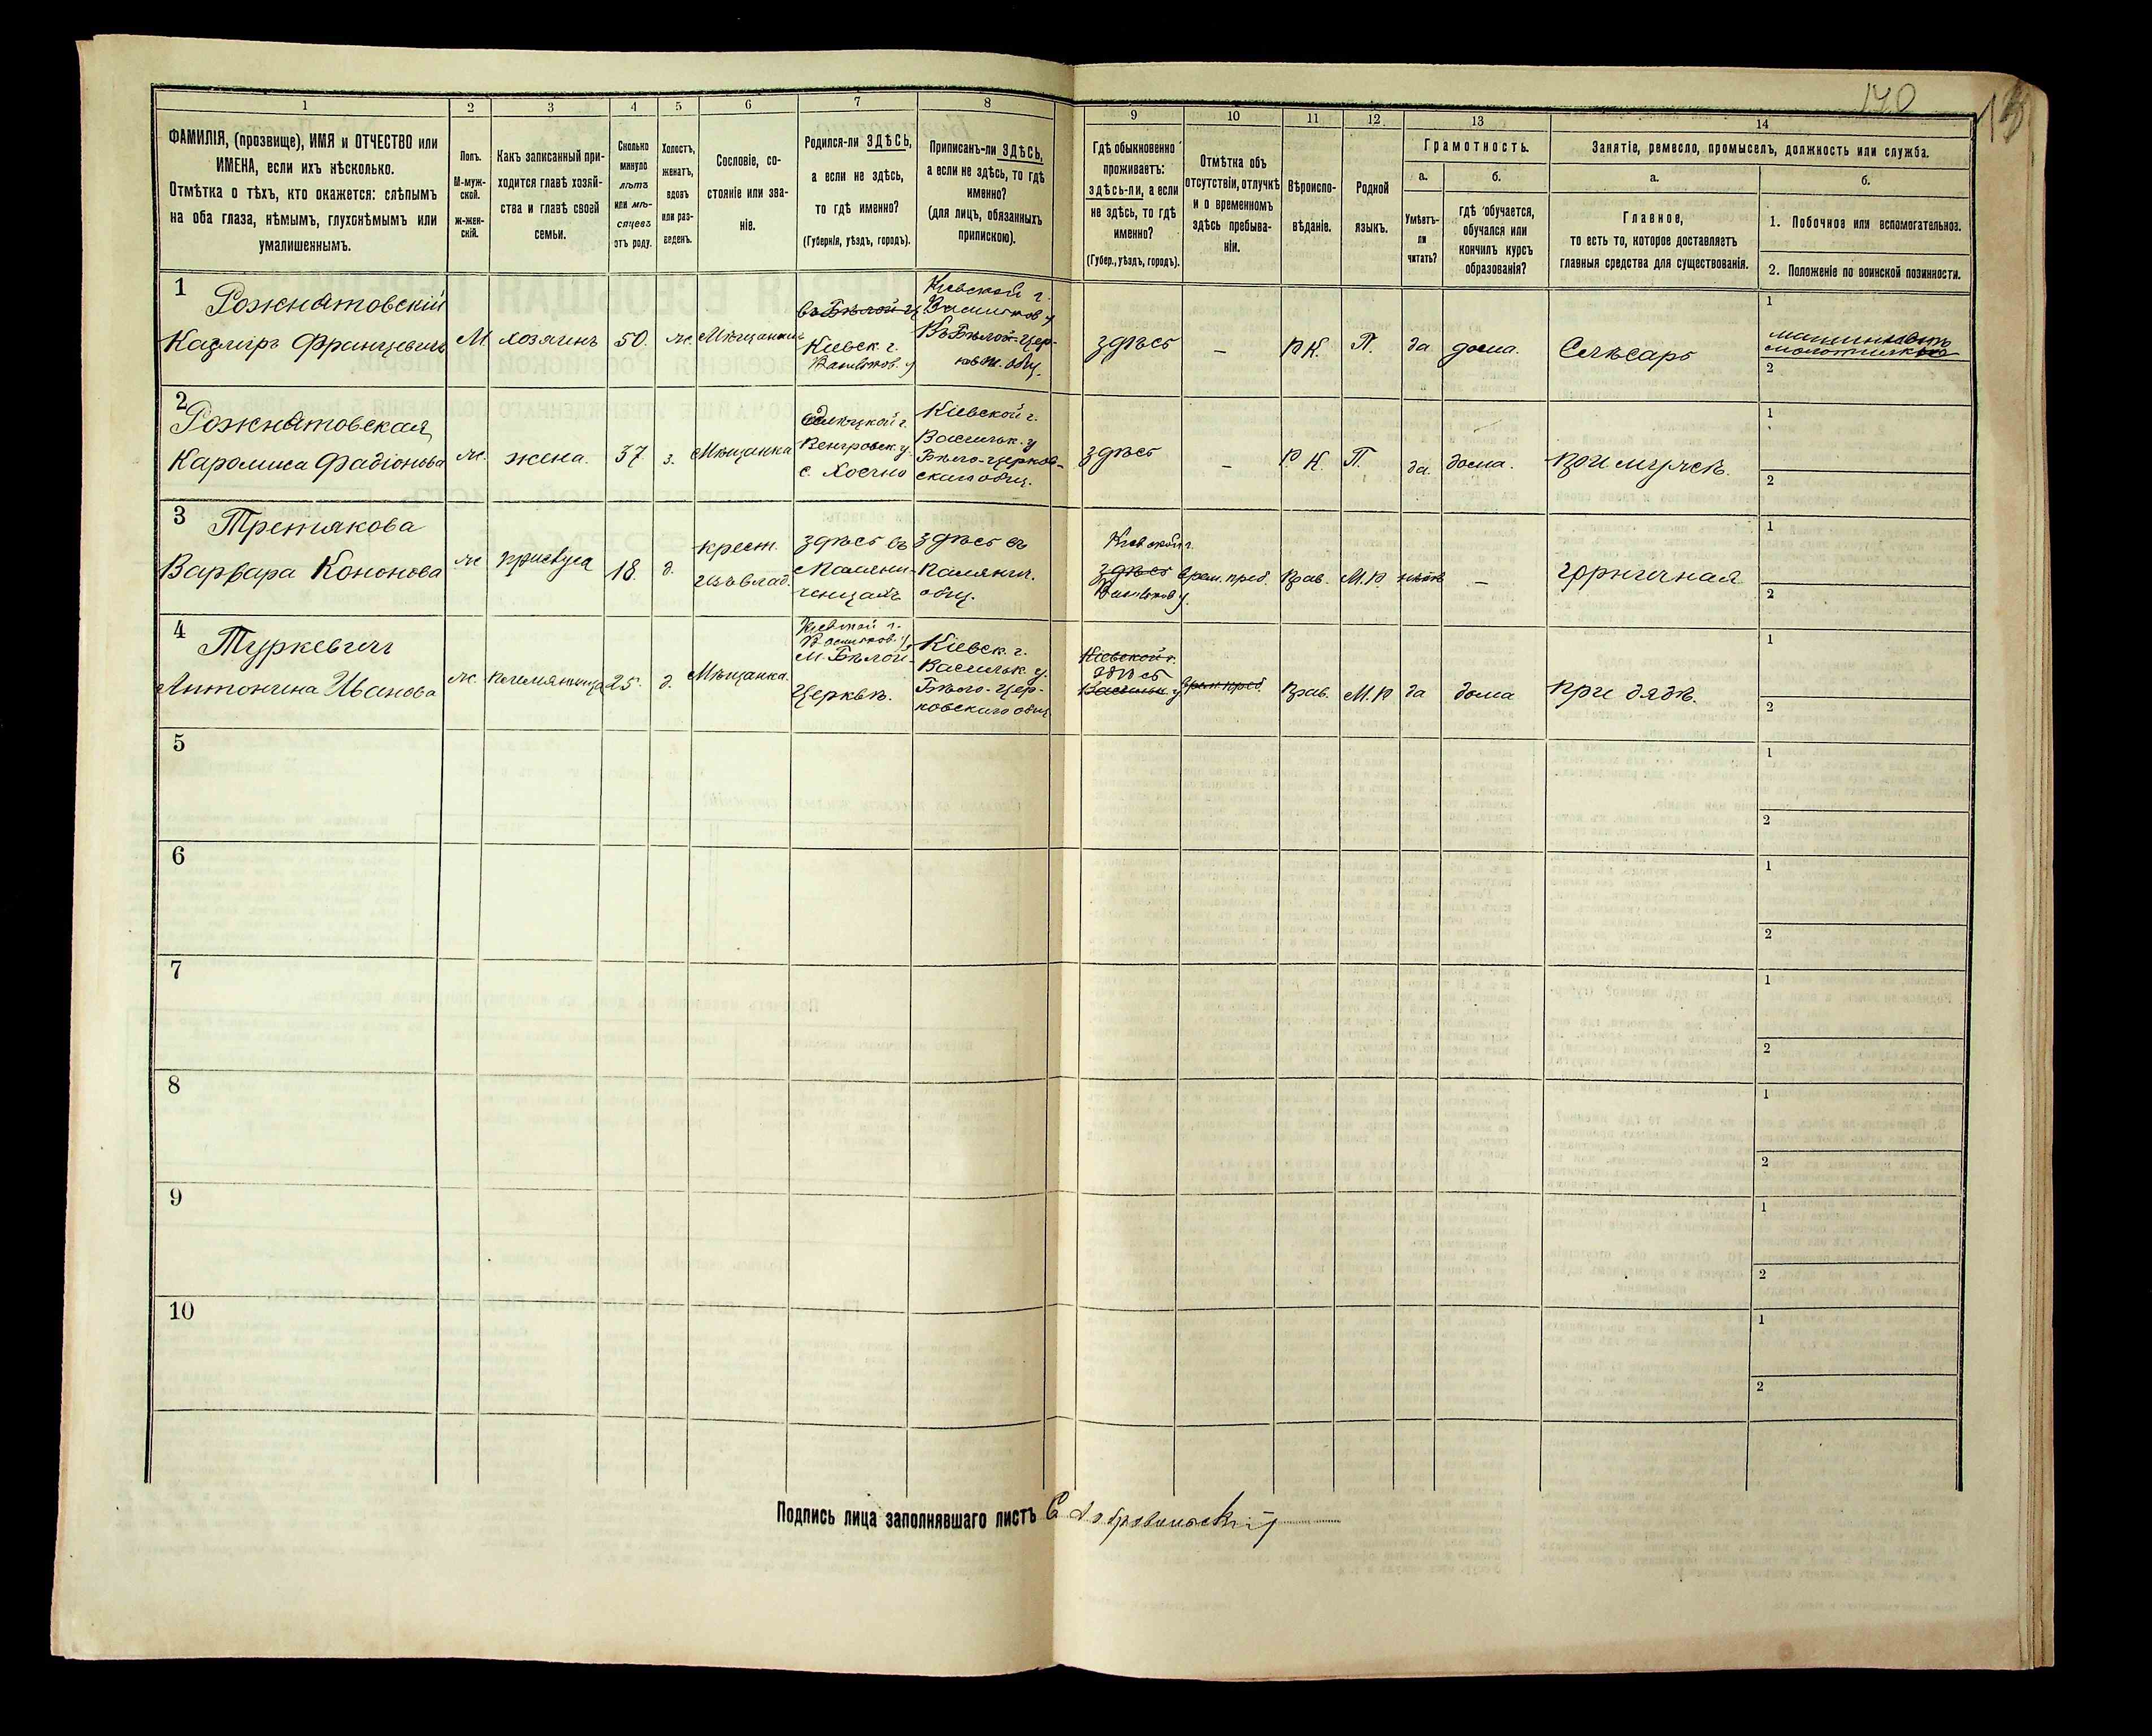 140
1
2
3
4
5
6
7
8
9
10
11
12
13
14
ФАМИЛІЯ, (прозвище), ИМЯ и ОТЧЕСТВО или
ИМЕНА, если ихъ нѣсколько.
Отмѣтка о тѣхъ, кто окажется: слѣпымъ
на оба глаза, нѣмымъ, глухонѣмымъ или
умалишеннымъ.
Полъ.
М-муж-
ской.
ж-жен-
скій.
Какъ записанный при-
ходится главѣ хозяй-
ства и главѣ своей
семьи.
Сколько
минуло
лѣтъ
или мѣ-
сяцевъ
отъ роду.
Холостъ,
женатъ,
вдовъ
или раз-
веденъ.
Сословіе, со-
стояніе или зва-
ніе.
Родился-ли ЗДѢСЬ,
а если не здѣсь,
то гдѣ именно?
(Губернія, уѣздъ, городъ).
Приписанъ-ли ЗДѢСЬ,
а если не здѣсь, то гдѣ
именно?
(для лицъ, обязанныхъ
припискою).
Гдѣ обыкновенно
проживаетъ:
здѣсь-ли, а если
не здѣсь, то гдѣ
именно?
(Губер., уѣздъ, городъ).
Отмѣтка объ
отсутствіи, отлучкѣ
и о временномъ
здѣсь пребыва-
ніи.
Вѣроиспо-
вѣданіе.
Родной
языкъ.
Грамотность.
а.
Умѣетъ-
ли
читать?
б.
гдѣ обучается,
обучался или
кончилъ курсъ
образованія?
Занятіе, ремесло, промыселъ, должность или служба.
а.
Главное,
то есть то, которое доставляетъ
главныя средства для существованія.
б.
1. Побочное или вспомогательное.
2. Положеніе по воинской повинности.
1
Рожнятовскій
Казміръ Францевичъ
М
хозяинъ
50.
ж.
Мѣщанинъ
въ Бѣлой ц
Кіевск. г.
Васильков. у
Кіевской г.
Васильков у
Въ Бѣлой-Цер-
ков. общ.
здѣсь
—
Р К.
П.
да
дома.
Слѣсарь
1
2
2
Рожнятовская
Каролина Фадіонова
ж.
жена.
37
з.
Мѣщанка
Сѣдлецкой г.
Венгровск. у.
с.
Кіевской г.
Васильк. у
Бѣло-Церков-
скаго общ.
здѣсь
—
Р. К.
П.
да.
дома.
при мужѣ.
1
2
3
Третякова
Варвара Кононова
ж
прислуга
18.
д.
крест.
изъ влад.
здѣсь въ
здѣсь въ
общ.
Кіевской г.
здѣсь
Васильков у.
врем. преб.
Прав.
М. Р
нѣтъ
—
горничная
1
2
4
Туркевичъ
Антонина Иванова
ж.
племянница
25.
д.
Мѣщанка.
Кіевской г.
Васильков. у.
М. Бѣлой-
Церквѣ.
Кіевск. г.
Васильк. у.
Бѣло-Цер-
ковскаго общ
Кіевской г.
здѣсь
Васильк. у
врем. преб.
Прав.
М. Р
да
дома
при дядѣ.
1
2
5
1
2
6
1
2
7
1
2
8
1
2
9
1
2
10
1
2
Подпись лица заполнявшаго листъ С Добровольскій